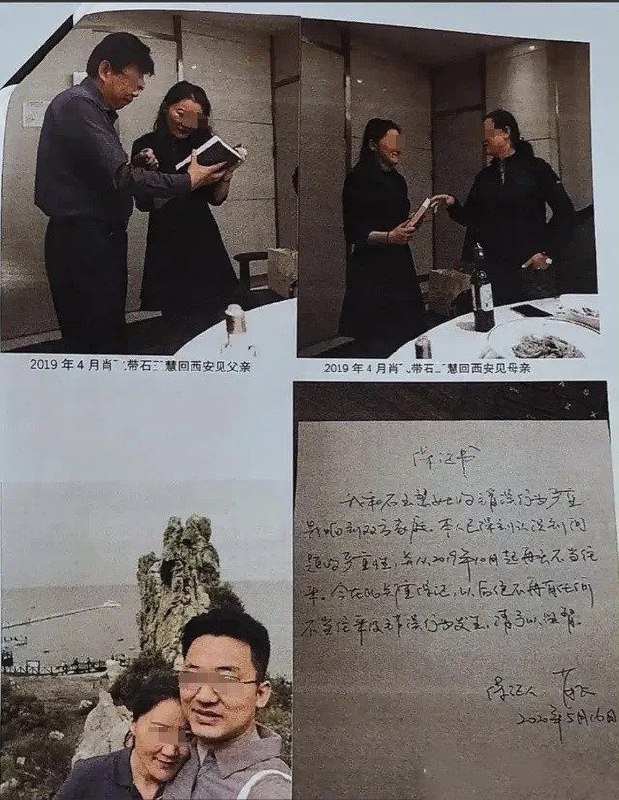 2019 年 4 月肖 带石 慧回西安见父亲
2019 年 4 月肖 带石 慧回西安见母亲
保证书
我和石 慧 的错误行为严重
影响到双方家庭。本人已深刻认识到问
题的严重性，并从2019年10月起再无不当往
来。今在此郑重保证，以后 不再有任何
不当往来及错误行为发生，请予以监督。
保证人
2020年5月16日